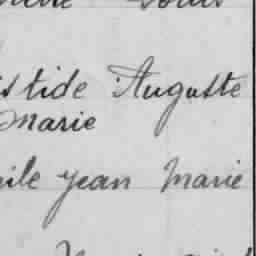 istide Auguste
Marie
ile Jean Marie